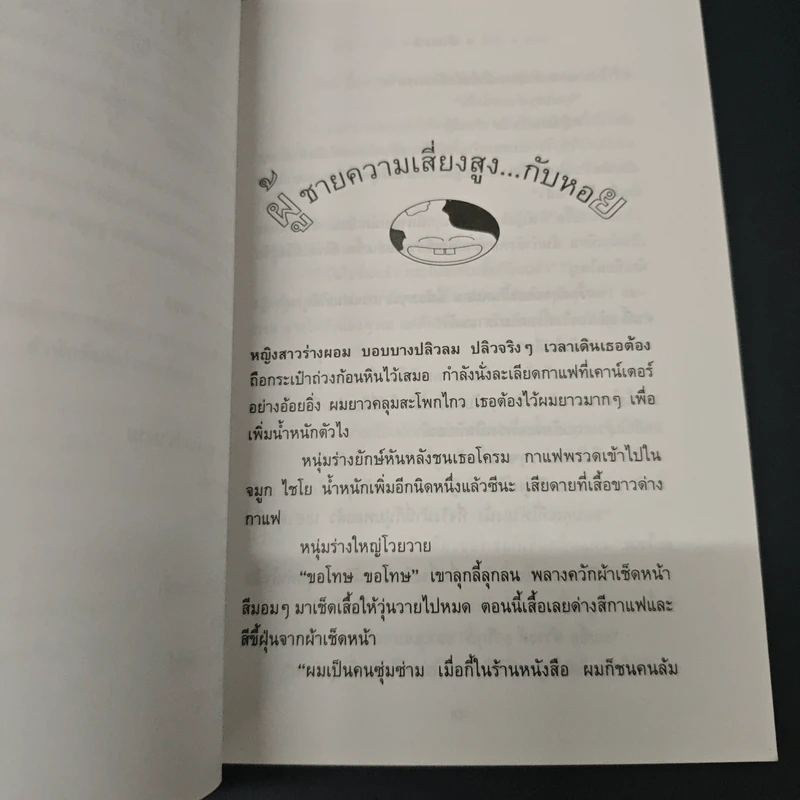 ผู้ชายความเสี่ยงสูง...กับหอย
หญิงสาวร่างผอม บอบบางปลิวลม ปลิวจริงๆ เวลาเดินเธอต้อง
ถือกระเป๋าถ่วงก้อนหินไว้เสมอ กำลังนั่งละเลียดกาแฟที่เคาน์เตอร์
อย่างอ้อยอิ่ง ผมยาวคลุมสะโพกไกว เธอต้องไว้ผมยาวมากๆ เพื่อ
เพิ่มน้ำหนักตัวไง
หนุ่มร่างยักษ์หันหลังชนเธอโครม กาแฟพรวดเข้าไปใน
จมูก ไชโย น้ำหนักเพิ่มอีกนิดหนึ่งแล้วซีนะ เสียดายที่เสื้อขาวด่าง
กาแฟ
หนุ่มร่างใหญ่โวยวาย
“ขอโทษ ขอโทษ” เขาลุกลี้ลุกลน พลางควักผ้าเช็ดหน้า
สีมอมๆ มาเช็ดเสื้อให้วุ่นวายไปหมด ตอนนี้เสื้อเลยด่างสีกาแฟและ
สีขี้ฝุ่นจากผ้าเช็ดหน้า
“ผมเป็นคนซุ่มซ่าม เมื่อกี้ในร้านหนังสือ ผมก็ชนคนล้ม